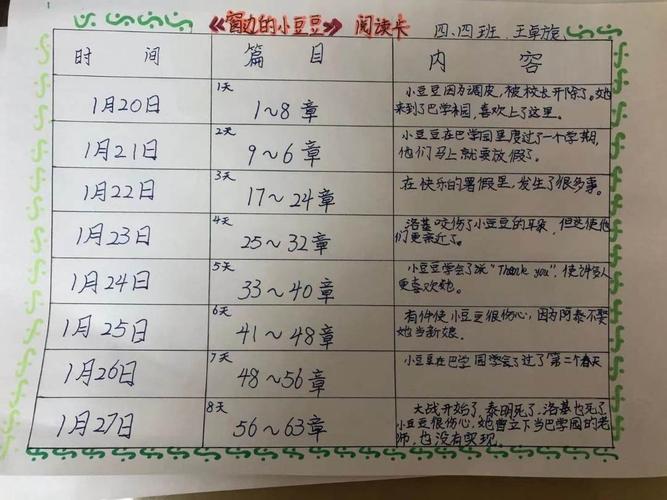 《窗边的小豆豆》 阅读卡 四、四班 王卓旋
时 间 篇 目 内 容
1月20日 1天 1～8 章 小豆豆因为调皮，被校长开除了。她
来到了巴学园，喜欢上了这里。
1月21日 2天 9～6 章 小豆豆在巴学园里度过了一个学期，
他们马上就要放假了。
1月22日 3天 17～24 章 在快乐的暑假里，发生了很多事。
1月23日 4天 25～32 章 洛基咬伤了小豆豆的耳朵，但这使他
们更亲近了。
1月24日 5天 33～40 章 小豆豆学会了说"Thank you"，使许多人
更喜欢她。
1月25日 6天 41～48 章 有件使小豆豆很伤心，因为阿泰不娶
她当新娘。
1月26日 7天 48～56 章 小豆豆在巴学园学会了过了第二个春天
1月27日 8天 56～63章 大战开始了，泰明死了，洛基也死了
小豆豆很伤心，她曾立下当巴学园的老
师，也没有实现。